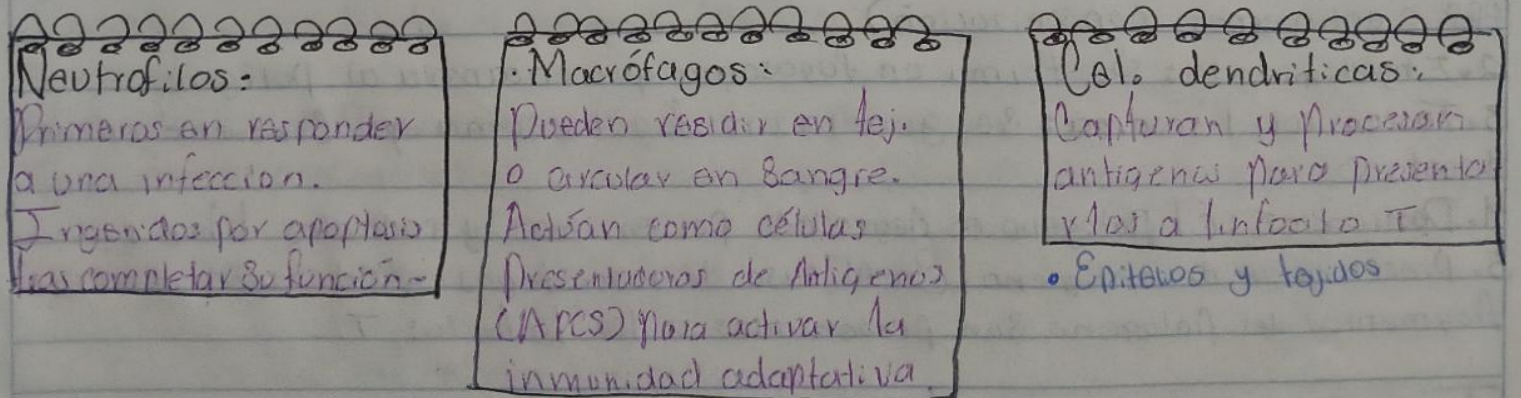 Neutrofilos:
Primeros en responder
a una infeccion.
Ingeridos por apoptosis
tras completar su función-
· Macrófagos:
Pueden residir en tej.
o circular en sangre.
Actúan como células
Presentadoras de Antigenos
(APCS) para activar la
inmunidad adaptativa.
Cel. dendriticas:
Capturan y Procesan
antigenos para presenta
rlos a linfocito T
• Epitelios y tejidos